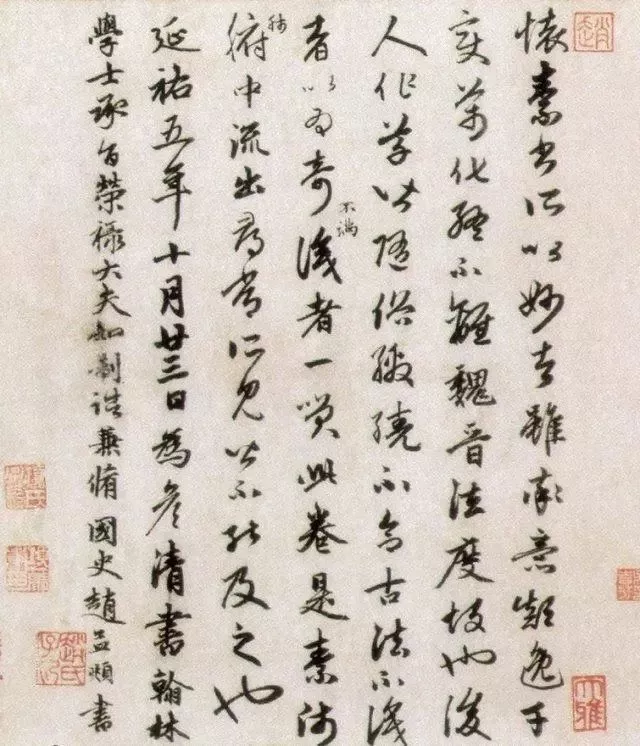 懷素書所以妙者雖率意顛逸千
變萬化終不離魏晉法度故也後
人作草皆隨俗繳繞不合古法不識
者以為奇不滿識者一笑此卷是素師
肺腑中流出尋常所見皆不能及之也
延祐五年十月廿三日為彥清書翰林
學士承旨榮祿大夫知制誥兼脩國史趙孟頫書
大雅
趙氏子昂